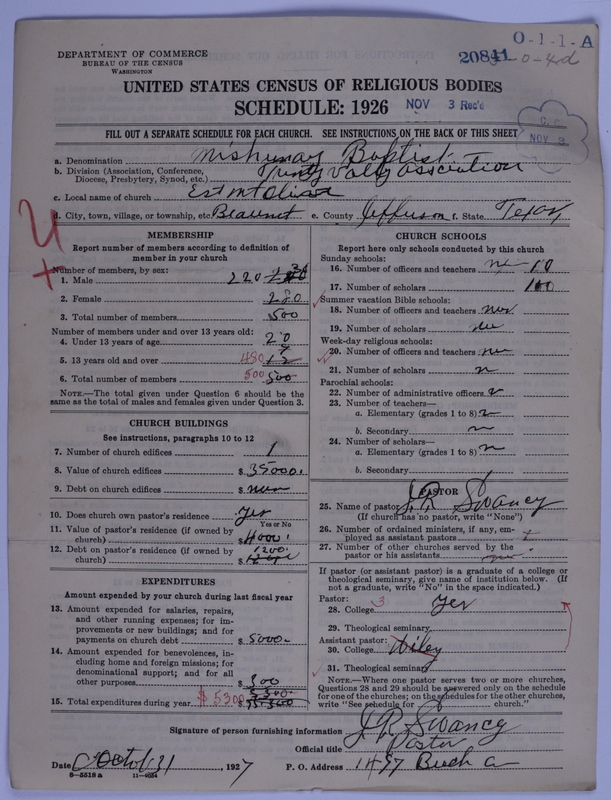 O-1-1-A
20841
DEPARTMENT OF COMMERCE
BUREAU OF THE CENSUS
WASHINGTON
UNITED STATES CENSUS OF RELIGIOUS BODIES
SCHEDULE: 1926
NOV 3 Rec'd
NOV 3
FILL OUT A SEPARATE SCHEDULE FOR EACH CHURCH. SEE INSTRUCTIONS ON THE BACK OF THIS SHEET
a. Denomination Mishunay Baptist
b. Division (Association, Conference, Diocese, Presbytery, Synod, etc.) Trinty Vally association
c. Local name of church
d. City, town, village, or township, etc. Beaumt e. County Jefferson f. State Texas
MEMBERSHIP
Report number of members according to definition of
member in your church
Number of members, by sex:
1. Male 220
2. Female 280
3. Total number of members 500
Number of members under and over 13 years old:
4. Under 13 years of age 20
5. 13 years old and over 480
6. Total number of members 500 500
NOTE.—The total given under Question 6 should be
same as the total of males and females given under Question 3.
CHURCH BUILDINGS
See instructions, paragraphs 10 to 12
7. Number of church edifices 1
8. Value of church edifices $ 35000.
9. Debt on church edifices $
10. Does church own pastor's residence yes
Yes or No
11. Value of pastor's residence (if owned by
church) $ 4000
12. Debt on pastor's residence (if owned by
church) $ 1200.
EXPENDITURES
Amount expended by your church during last fiscal year
13. Amount expended for salaries, repairs,
and other running expenses; for im-
provements or new buildings; and for
payments on church debt $ 5000.
14. Amount expended for benevolences, in-
cluding home and foreign missions; for
denominational support; and for all
other purposes $ 300
15. Total expenditures during year $ 5300 5300
CHURCH SCHOOLS
Report here only schools conducted by this church
Sunday schools:
16. Number of officers and teachers 10
17. Number of scholars 100
Summer vacation Bible schools:
18. Number of officers and teachers
19. Number of scholars
Week-day religious schools:
20. Number of officers and teachers
21. Number of scholars
Parochial schools:
22. Number of administrative officers
23. Number of teachers—
a. Elementary (grades 1 to 8)
b. Secondary
24. Number of scholars—
a. Elementary (grades 1 to 8)
b. Secondary
PASTOR
25. Name of pastor J. R. Swancy
(If church has no pastor, write "None")
26. Number of ordained ministers, if any, em-
ployed as assistant pastors
27. Number of other churches served by the
pastor or his assistants
If pastor (or assistant pastor) is a graduate of a college or
theological seminary, give name of institution below. (If
not a graduate, write "No" in the space indicated.)
Pastor:
28. College 3 yes
29. Theological seminary
Assistant pastor:
30. College Wiley
31. Theological seminary
NOTE.—Where one pastor serves two or more churches,
Questions 28 and 29 should be answered only on the schedule
for one of the churches; on the schedules for the other churches,
write "See schedule for church."
Signature of person furnishing information J. R. Swancy
Official title Pastor
Date Octob 31, 1927 P. O. Address 1497
8—5518 a 11—9054